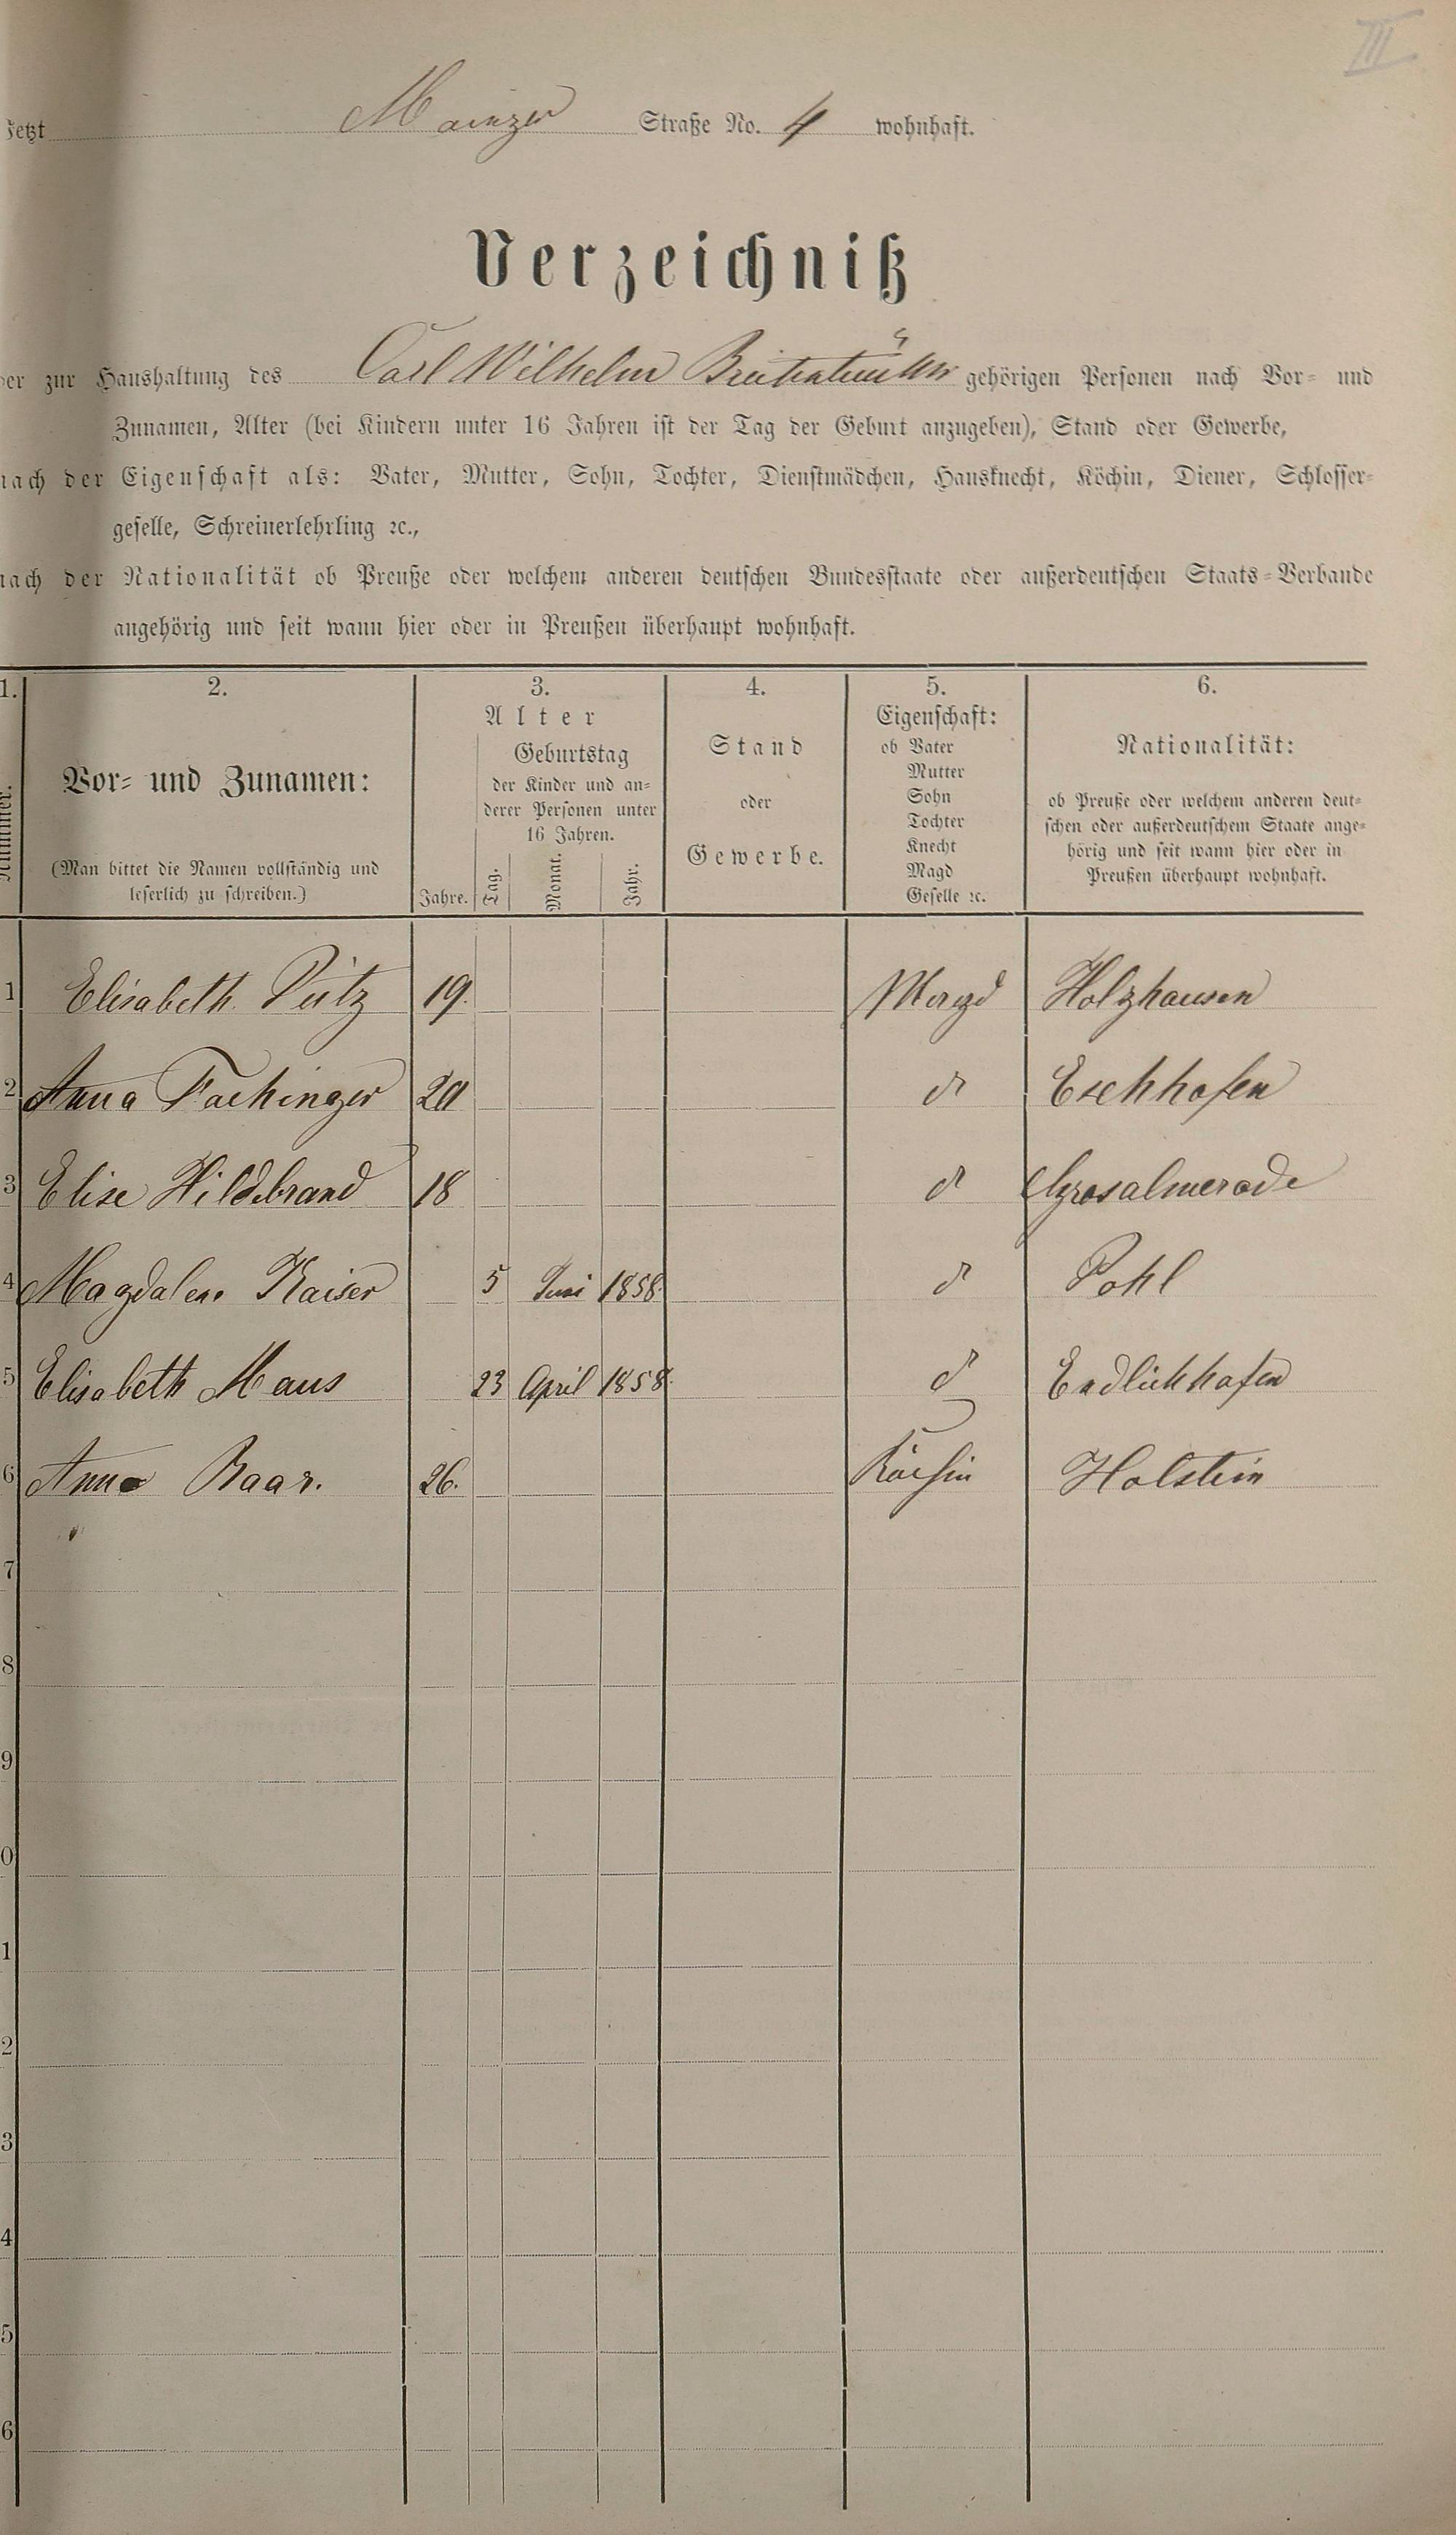 III
Jetzt Mainzer Straße No. 4 wohnhaft.
Verzeichniß
der zur Haushaltung des Carl Wilhelm gehörigen Personen nach Vor- und
Zunamen, Alter (bei Kindern unter 16 Jahren ist der Tag der Geburt anzugeben), Stand oder Gewerbe,
nach der Eigenschaft als: Vater, Mutter, Sohn, Tochter, Dienstmädchen, Hausknecht, Köchin, Diener, Schlosser-
geselle, Schreinerlehrling ꝛc.,
nach der Nationalität ob Preuße oder welchem anderen deutschen Bundesstaate oder außerdeutschen Staats-Verbande
angehörig und seit wann hier oder in Preußen überhaupt wohnhaft.
1. 2. 3. 4. 5. 6.
Nummer.
Vor- und Zunamen:
(Man bittet die Namen vollständig und
leserlich zu schreiben.)
Alter
Geburtstag
der Kinder und an-
derer Personen unter
16 Jahren.
Jahre. Tag. Monat. Jahr.
Stand
oder
Gewerbe.
Eigenschaft:
ob Vater
Mutter
Sohn
Tochter
Knecht
Magd
Geselle ꝛc.
Nationalität:
ob Preuße oder welchem anderen deut-
schen oder außerdeutschem Staate ange-
hörig und seit wann hier oder in
Preußen überhaupt wohnhaft.
1 Elisabeth Pütz 19. Magd Holzhausen
2 Anna Fachinger 20 do Eschhofen
3 Elise Hildebrand 18 do Grosalmerode
4 Magdalene Kaiser 5 Juni 1858. do Pohl
5 Elisabeth Maus 23 April 1858. do Endlichhofen
6 Anna Baar. 26. Köchin Holstein
7
8
9
0
1
2
3
4
5
6